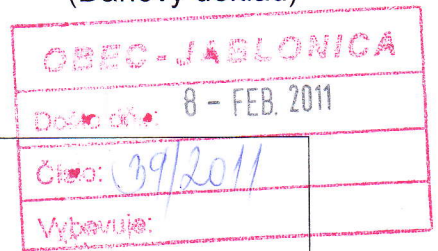 (Daňový doklad)
OBEC-JABLONICA
Došlo dňa: 8 - FEB. 2011
Číslo: 39/2011
Vybavuje: